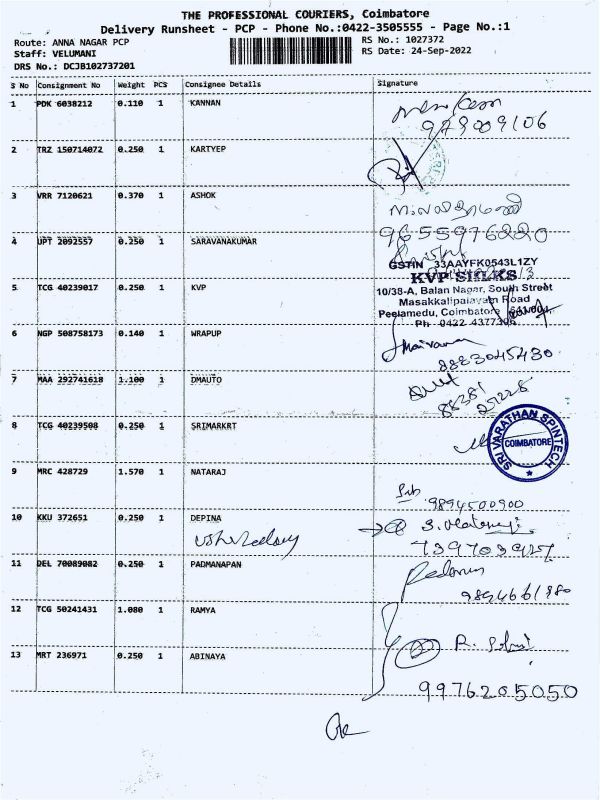 THE PROFESSIONAL COURIERS, Coimbatore
Delivery Runsheet - PCP - Phone No.:0422-3505555 - Page No.:1
Route: ANNA NAGAR PCP
RS No.: 1027372
Staff: VELUMANI
RS Date: 24-Sep-2022
DRS No.: DCJB102737201
S No Consignment No Weight PCS Consignee Details Signature
1 PDK 6038212 0.110 1 KANNAN
2 TRZ 150714072 0.250 1 KARTYEP
3 VRR 7120621 0.370 1 ASHOK
9655976220
4 UPT 2092557 0.250 1 SARAVANAKUMAR
GSTIN 33AAYFK0543L1ZY
KVP SILKS
5 TCG 40239017 0.250 1 KVP
10/38-A, Balan Nagar, South Street
Masakkalipalayam Road
Peelamedu, Coimbatore
Ph 0422 4377306
6 NGP 508758173 0.140 1 WRAPUP
8883045430
7 MAA 292741618 1.100 1 DMAUTO
88381
27228
8 TCG 40239508 0.250 1 SRIMARKRT
SRI VARATHAN SPINTECH
COIMBATORE
9 MRC 428729 1.570 1 NATARAJ
9894500900
10 KKU 372651 0.250 1 DEPINA
11 DEL 70089082 0.250 1 PADMANAPAN
12 TCG 50241431 1.080 1 RAMYA
13 MRT 236971 0.250 1 ABINAYA
9976205050